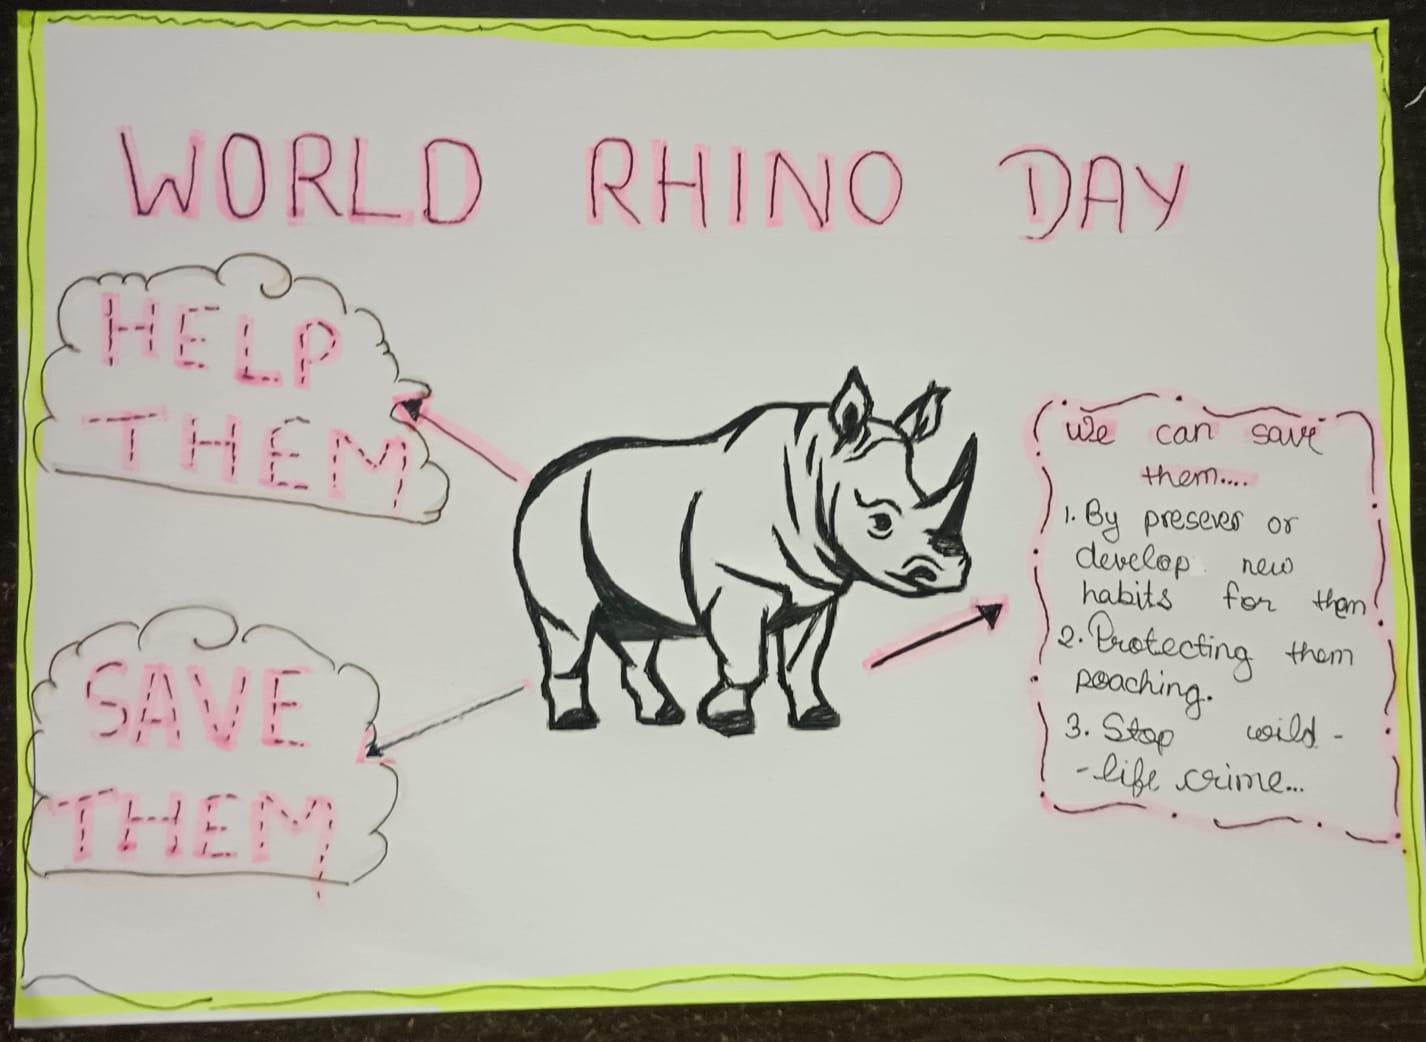 WORLD RHINO DAY
HELP
THEM
SAVE
THEM
We can save
them....
1. By presever or
develop new
habits for them.
2. Protecting them
poaching.
3. Stop wild-
-life crime...